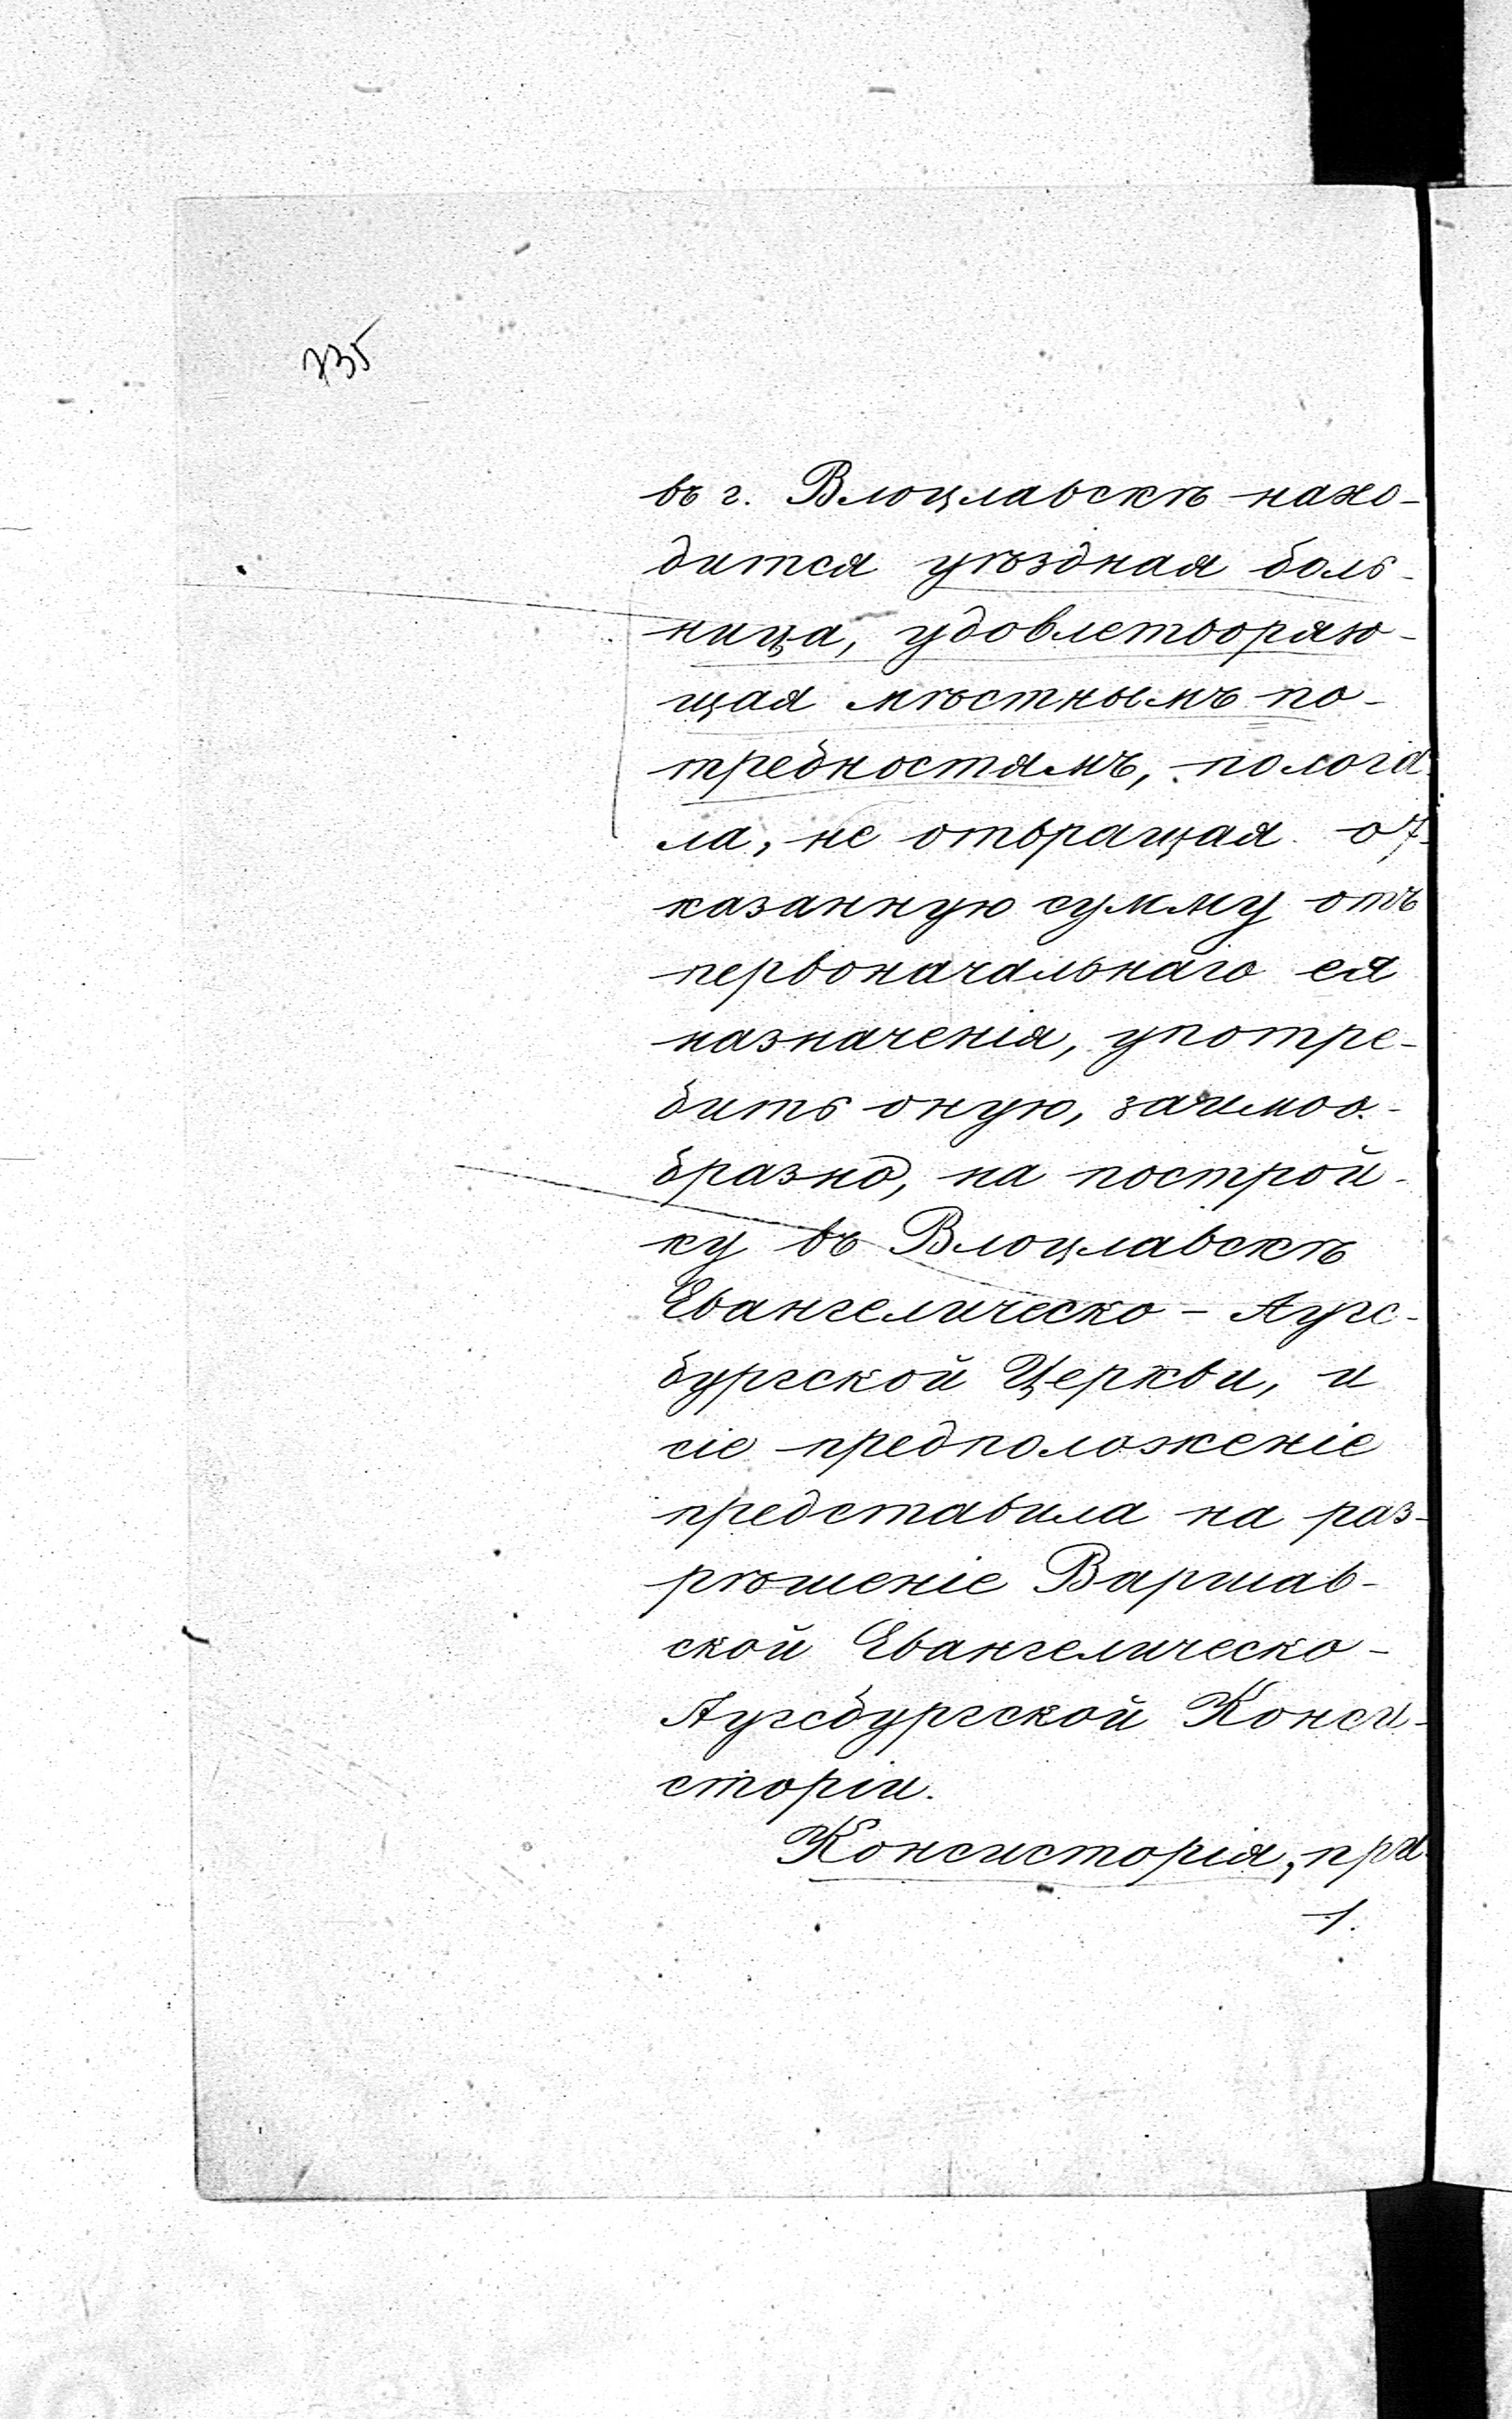 735
въ г. Влоцлавскѣ нахо-
дится уѣздная боль-
ница, удовлетворяю-
щая мѣстнымъ по-
требностямъ, полага-
ла, не отвращая от-
казанную сумму отъ
первоначальнаго ея
назначенія, употре-
бить оную, заимоо-
бразно, на построй-
ку въ Влоцлавскѣ
Евангелическо - Аугс-
бургской Церкви, и
сіе предположеніе
представила на раз-
рѣшеніе Варшав-
ской Евангелическо-
Аугсбургской Конси-
сторіи.
Консисторія, при
1.